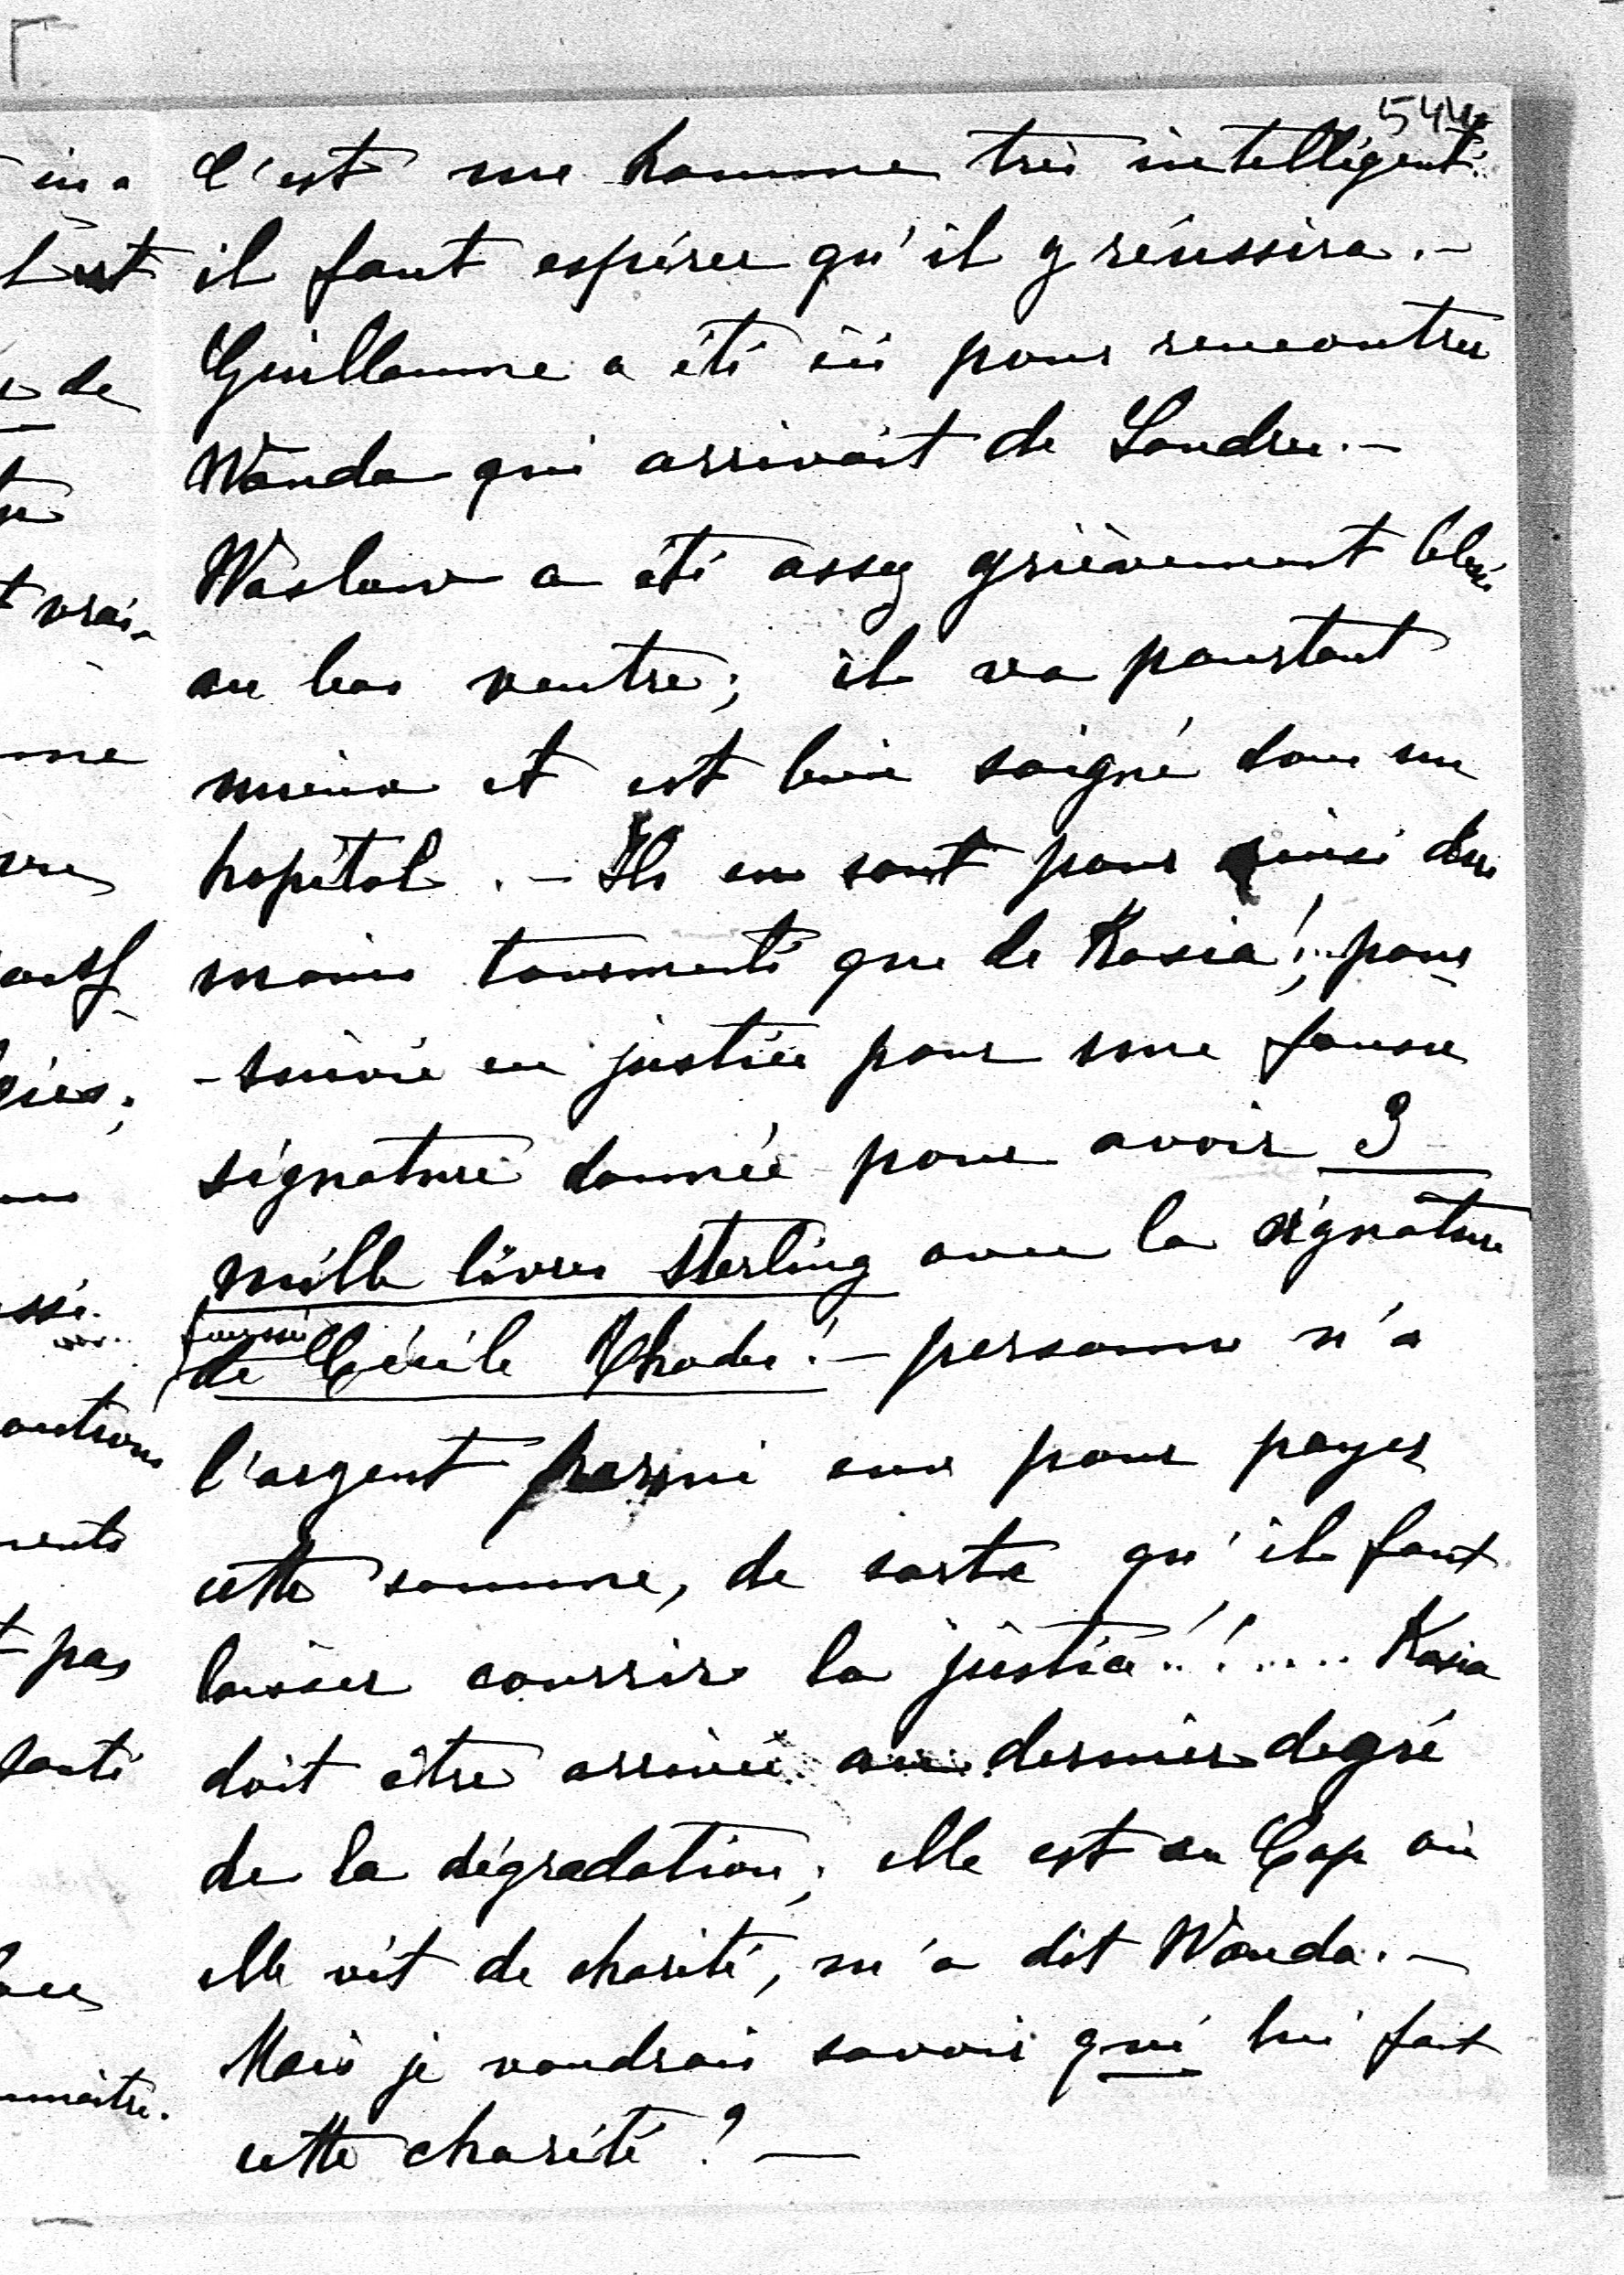 544
C'est une homme très intelligent.
il faut espérer qu'il y réussira. —
Guillaume a été ici pour rencontrer
Wanda qui arrivait de Londres. —
Waslaw a été assez grièvement blessé
au bas ventre; il va pourtant
mieux et est bien soigné dans un
hopital. — Ils en sont pour ainsi dire
moins tourmenté que de Kasia!.. pour
-suivie en justice pour une fausse
signature donnée pour avoir 3
mille livres Sterling avec la signature
fausse
de Cécile Rhodes! — personne n'a
l'argent parmi eux pour payer
cette somme, de sorte qu'il faut
laisser courrir la justice!!..... Kasia
doit être arrivée au dernier degré
de la dégradation; elle est au Cap où
elle vit de charité, m'a dit Wanda. —
Mais je voudrais savoir qui lui fait
cette charité? —